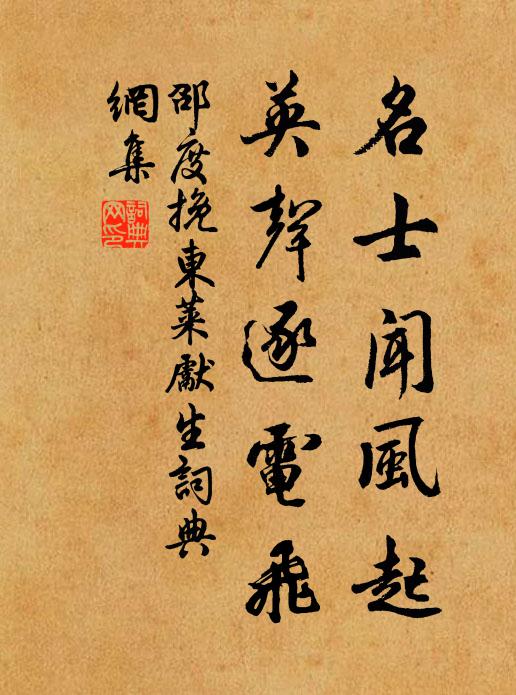 名士聞風起
英聲逐電飛
邵度挽東萊獻生詞典
網集
詞典
网印